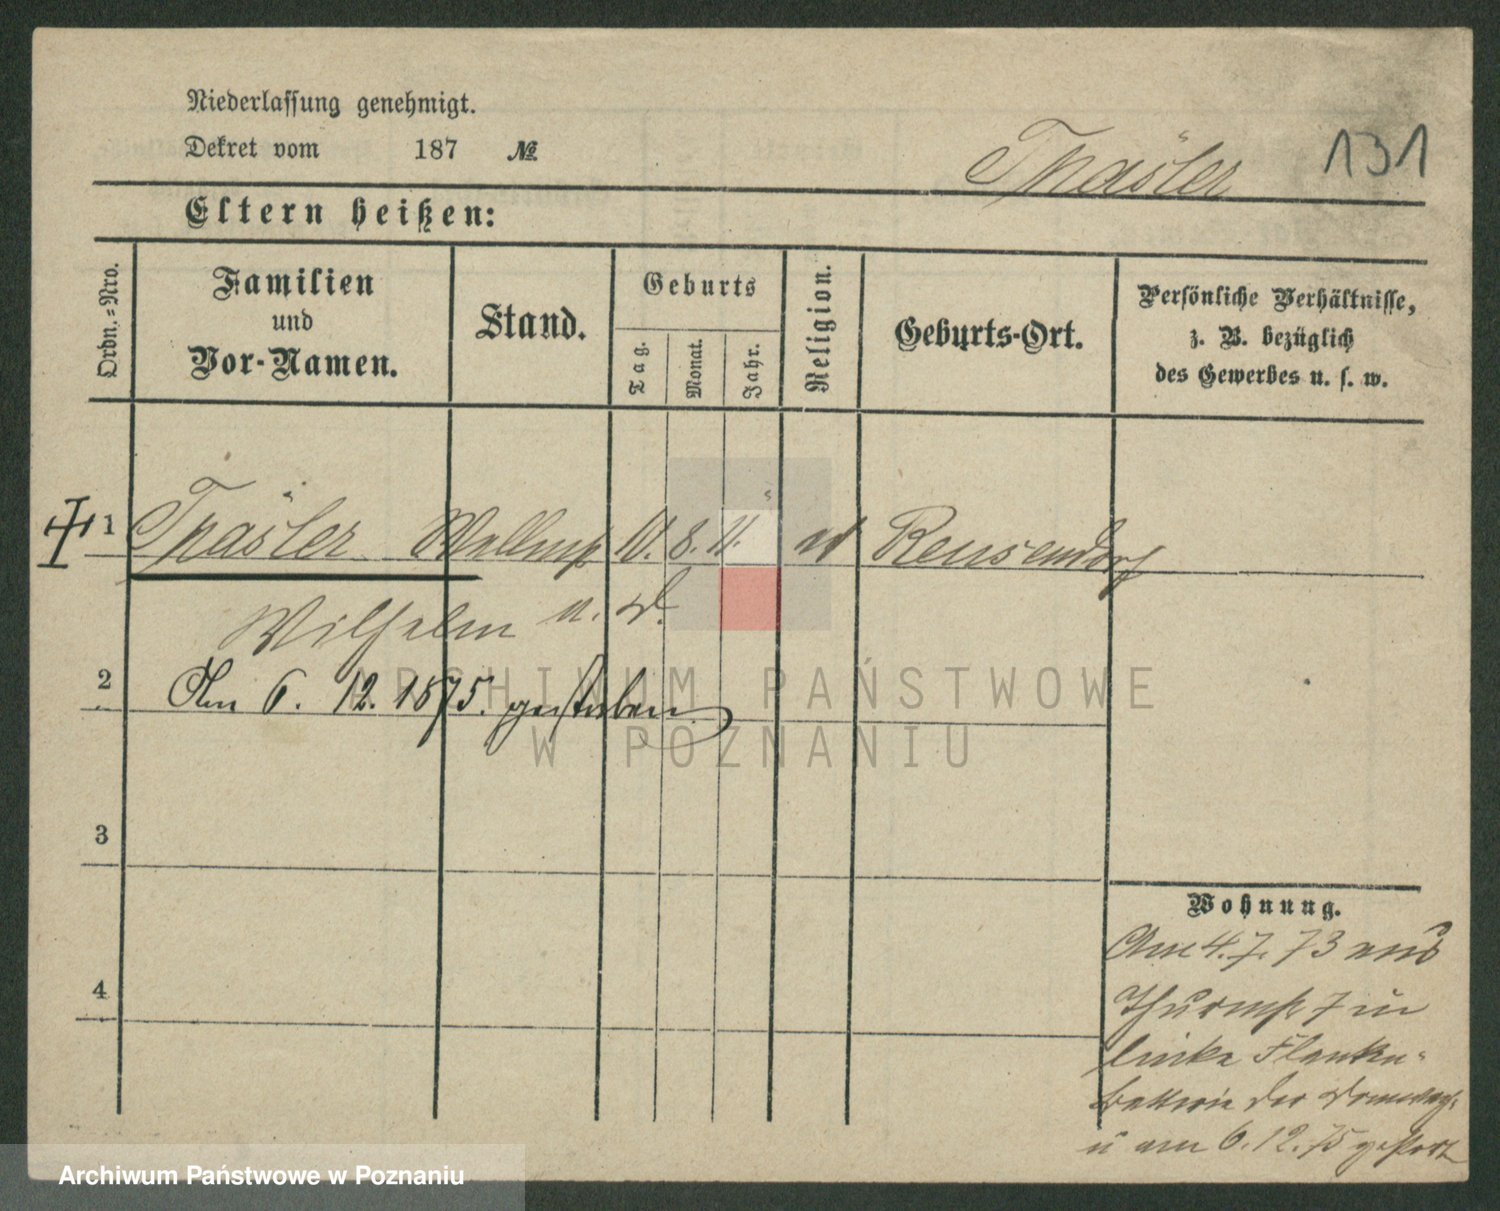 Niederlassung genehmigt.
Dekret vom 187 №
Thäsler 131
Eltern heißen:
Ordn.-Nro.
Familien
und
Vor-Namen.
Stand.
Geburts
Tag.
Monat.
Jahr.
Religion.
Geburts-Ort.
Persönliche Verhältnisse,
z. B. bezüglich
des Gewerbes u. s. w.
1 Thäsler 10. 8. 11. Reusendorf
Wilhelm
2 Am 6. 12. 1875. gestorben
3
4
Wohnung.
Am 4. 7. 73 aus
Thurmstr 7 in
linke Flanken-
batterie der
u am 6. 12. 75 gestorb
ARCHIWUM PAŃSTWOWE
W POZNANIU
Archiwum Państwowe w Poznaniu